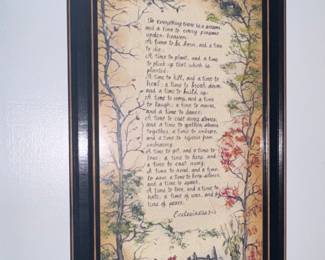 To everything there is a season,
and a time to every purpose
under heaven:
A time to be born, and a time
to die;
A time to plant, and a time
to pluck up that which is
planted;
A time to kill, and a time to
heal; a time to break down
and a time to build up;
A time to weep, and a time
to laugh; a time to mourn,
and a time to dance;
A time to cast away stones,
and a time to gather stones
together, a time to embrace,
and a time to refrain from
embracing
A time to get, and a time to
lose; a time to keep, and
a time to cast away;
A time to rend, a time
to sew; a time to keep silence
and a time to speak;
A time to love, and a time to
hate; a time of war, and a
time of peace.
Ecclesiastes